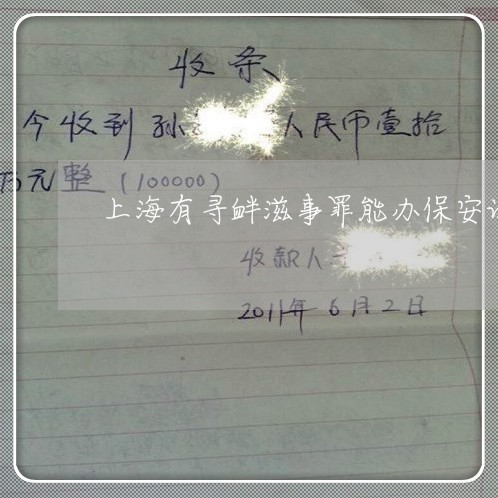 收条
今收到孙 人民币壹拾
万元整(100000)
上海有寻衅滋事罪能办保安
收款人
2011年6月2日